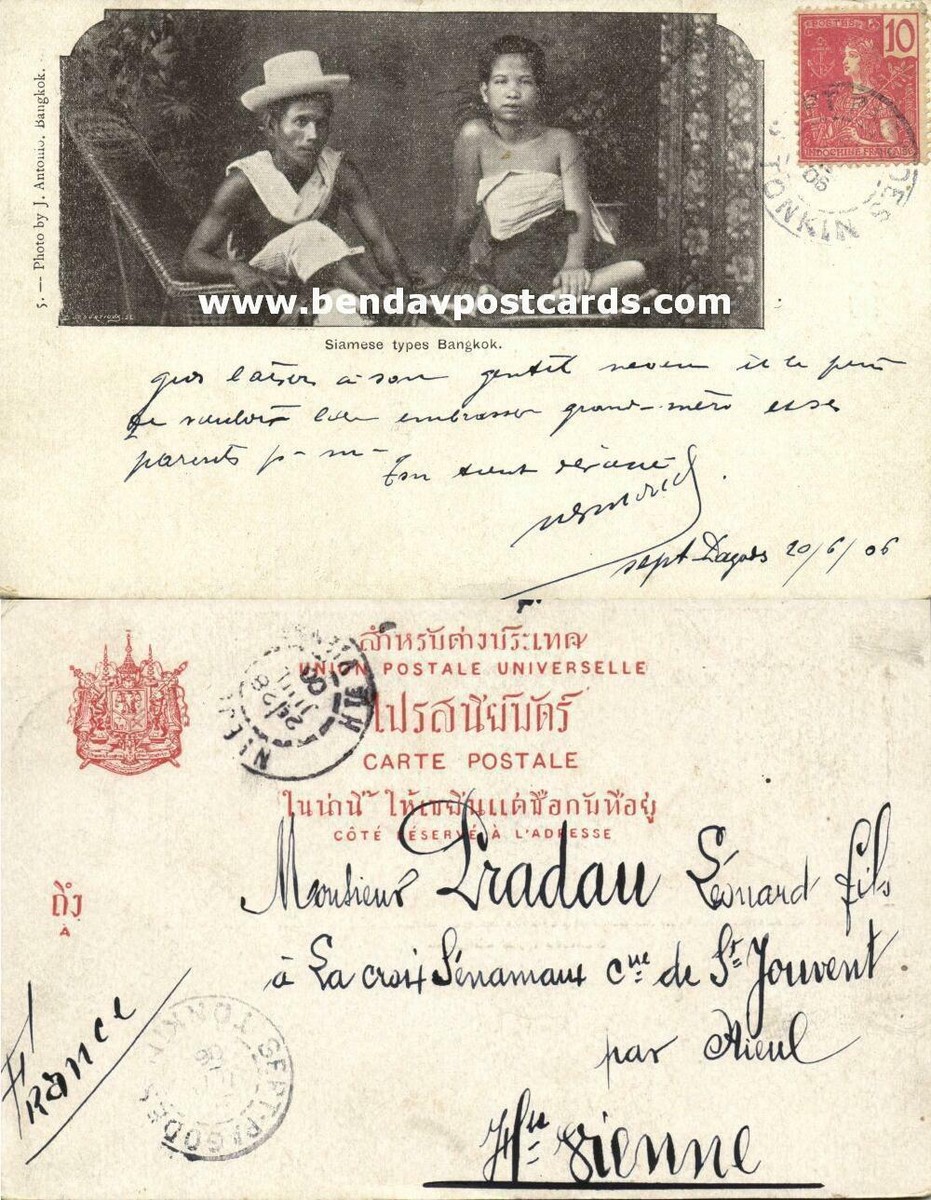 5. — Photo by J. Antonio, Bangkok.
POSTES
10
INDOCHINE FRANÇAISE
TONKIN
06
www.bendavpostcards.com
Siamese types Bangkok.
gros baiser à son gentil neveu et le prie
de vouloir bien embrasser grand-mère et ses
parents p-m-
Ton tout dévoué
sept Pagodes 20/6/06
สำหรับต่างประเทศ
UNION POSTALE UNIVERSELLE
ไปรสนียบัตร์
CARTE POSTALE
ในน่านี้ ให้เขียนแต่ชื่อกับที่อยู่
CÔTÉ RÉSERVÉ À L'ADRESSE
NIEUL
HTE VIENNE
28
JUIL
06
ถึง
À
Monsieur Pradau Léonard fils
à La croix Sénamaux cne de St Jouvent
par Nieul
Hte Vienne
France
SEPT-PAGODES
TONKIN